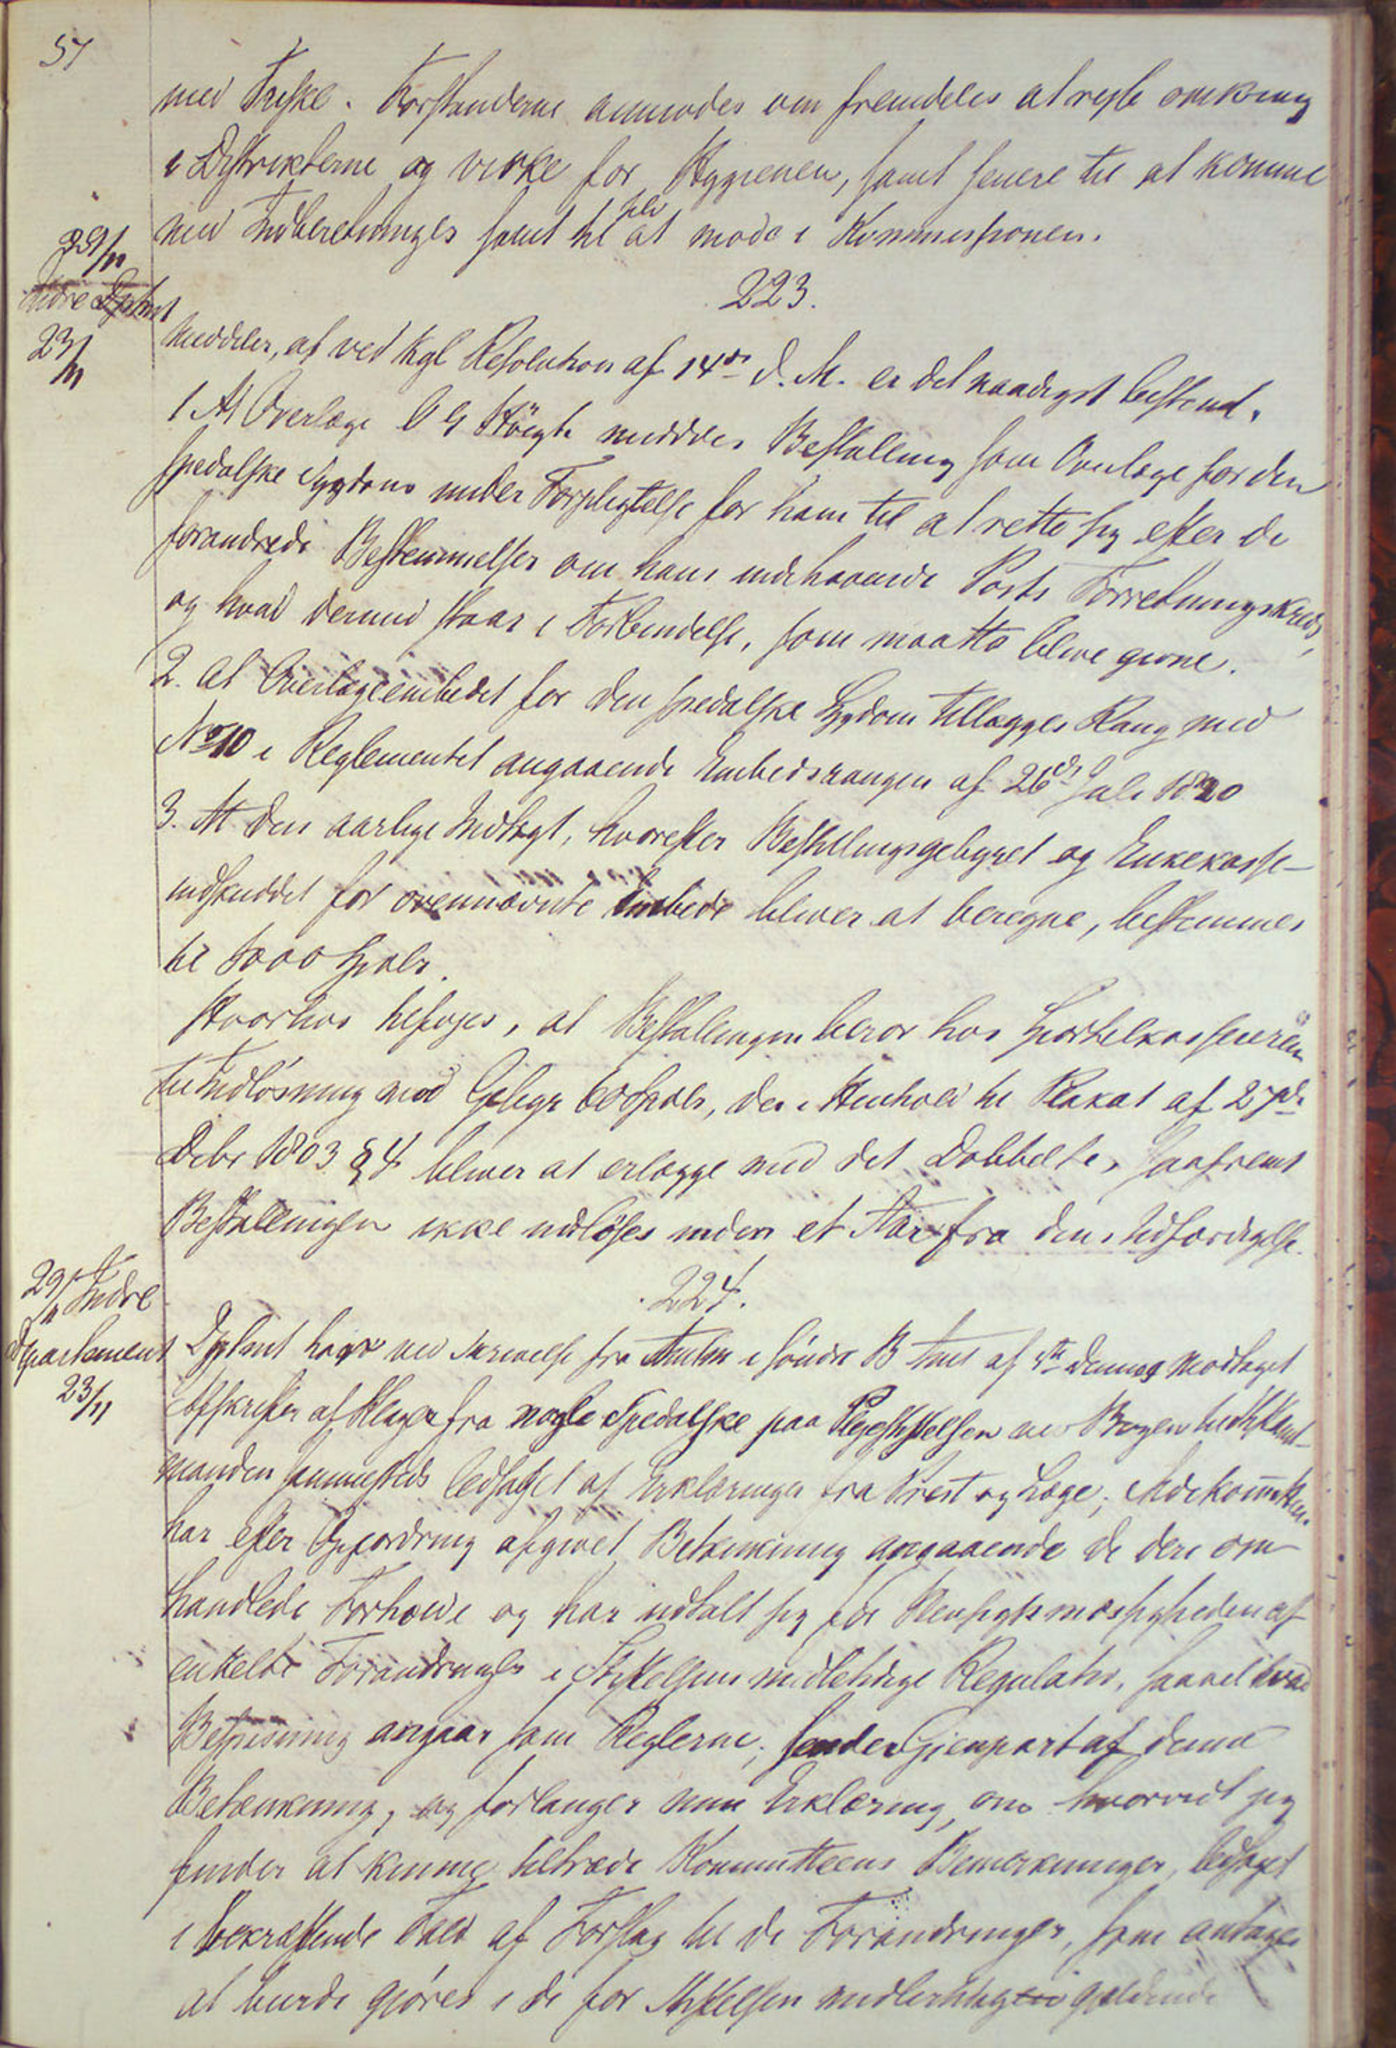 57
med Friske. Forstanderne anmodes om fremdeles at rejse omkring
i Distrikterne og virke for Hygienen, samt senere til at komme
med Indberetninger samt til selv at møde i Kommissionen.
29/11
Indre Dptmt
23/11
223.
Meddeler, at ved Kgl Resolution af 14de d. M. er det naadigst bestemt.
1 At Overlæge O G Höegh meddeles Bestalling som Overlæge for den
spedalske Sygdom under Forpligtelse for ham til at rette sig efter de
forandrede Bestemmelser om hans indehavende Posts Forretningskreds,
og hvad dermed staar i Forbindelse, som maatte blive givne.
2. at Overlægeembedet for den spedalske Sygdom tillægges Rang med
No 10 i Reglementet angaaende Embedsrangen af 26de Juli 1820
3. At den aarlige Indtægt, hvorefter Bestallingsgebyret og Enkekasse-
indskuddet for ovennævnte Embede bliver at beregne, bestemmes
til 1000 Spdlr.
Hvorhos tilføjes, at Bestallingen beror hos Sportelkassereren
til Indlösning mod Gebyr 60 Spdlr, der i Henhold til Plakat af 27de
Debr 1803 § 4 bliver at erlægge med det Dobbelte, saafremt
Bestallingen ikke indlöses inden et Aar fra dens Udfærdigelse.
29/11 Indre
Departement
23/11
224.
Dptmt har ved Skrivelse fra Amtm i söndre B Amt af dennes modtaget
Afskrifter af Klager fra nogle Spedalske paa Plejestiftelsen ved Bergen til
manden sammesteds ledsaget af Erklæringer fra Prest og Læge;
har efter Opfordring afgivet Betænkning angaaende de deri om
handlede Forholde og har udtalt sig for Hensigtsmæssigheden af
enkelte Forandringer i Stiftelsens midlertidige Regulativ, saavel hvad
Bespisning angaar som Reglerne; sender Gjenpart af denne
Betænkning, og forlanger min Erklæring, om hvorvidt jeg
finder at kunne tiltræde Kommitteens Bemerkninger, ledsaget
i bekræftende Fald af Forslag til de Forandringer, som antages
at burde gjöres i de for Stiftelsen midlertidig gjeldende